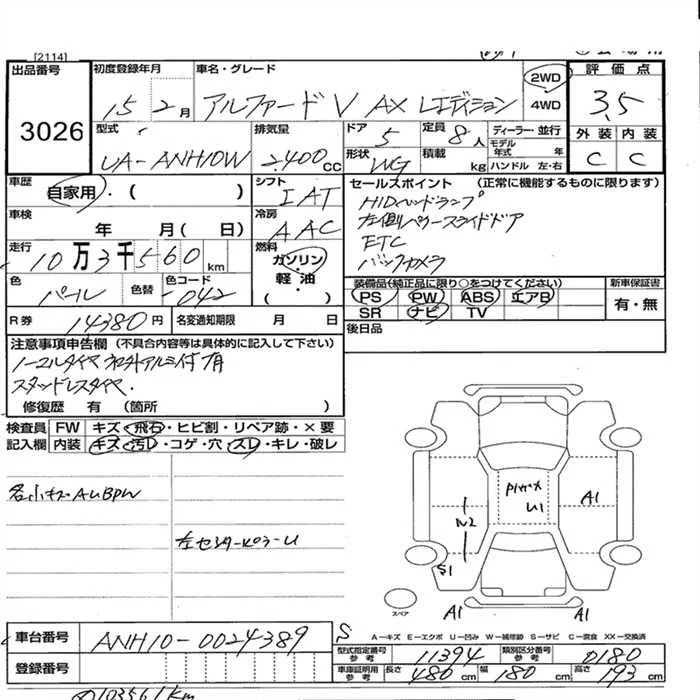 [2114]
出品番号
3026
初度登録年月
15 2月
車名・グレード
アルファード V AX Lエディション
2WD
4WD
評価点
3.5
外装 内装
C C
型式
UA-ANH10W
排気量
2.400cc
ドア
5
定員
8人
形状
WG
積載
kg
ディーラー・並行
モデル年式 年
ハンドル 左・右
車歴
自家用・( )
シフト
IAT
車検
年 月( 日)
冷房
AAC
走行
10万3千560km
燃料
ガソリン・
軽油・
( )
色
パール
色替
色コード
042
セールスポイント (正常に機能するものに限ります)
HIDヘッドランプ
左側パワースライドドア
ETC
バックカメラ
装備品(純正品に限り○をつけてください)
PS PW ABS エアB
SR ナビ TV
新車保証書
有・無
R券
14380円
名変通知期限
月 日
後日品
注意事項申告欄 (不具合内容等は具体的に記入して下さい)
ノーマルタイヤ 社外アルミ付 有
スタッドレスタイヤ.
修復歴 有 (箇所 )
検査員記入欄
FW キズ・飛石・ヒビ割・リペア跡・×要
内装 キズ・汚レ・コゲ・穴・スレ・キレ・破レ
各小キズAUBPW
左センターピラーU
U1
A1
W2
S1
A1
A1
スペア
S
A−キズ E−エクボ U−凹み W−補修跡 S−サビ C−腐食 XX−交換済
車台番号
ANH10-0024389
登録番号
型式指定番号 参考
11394
類別区分番号 参考
0180
車庫証明用 参考
長さ 480cm 幅 180cm 高さ 193cm
103561km